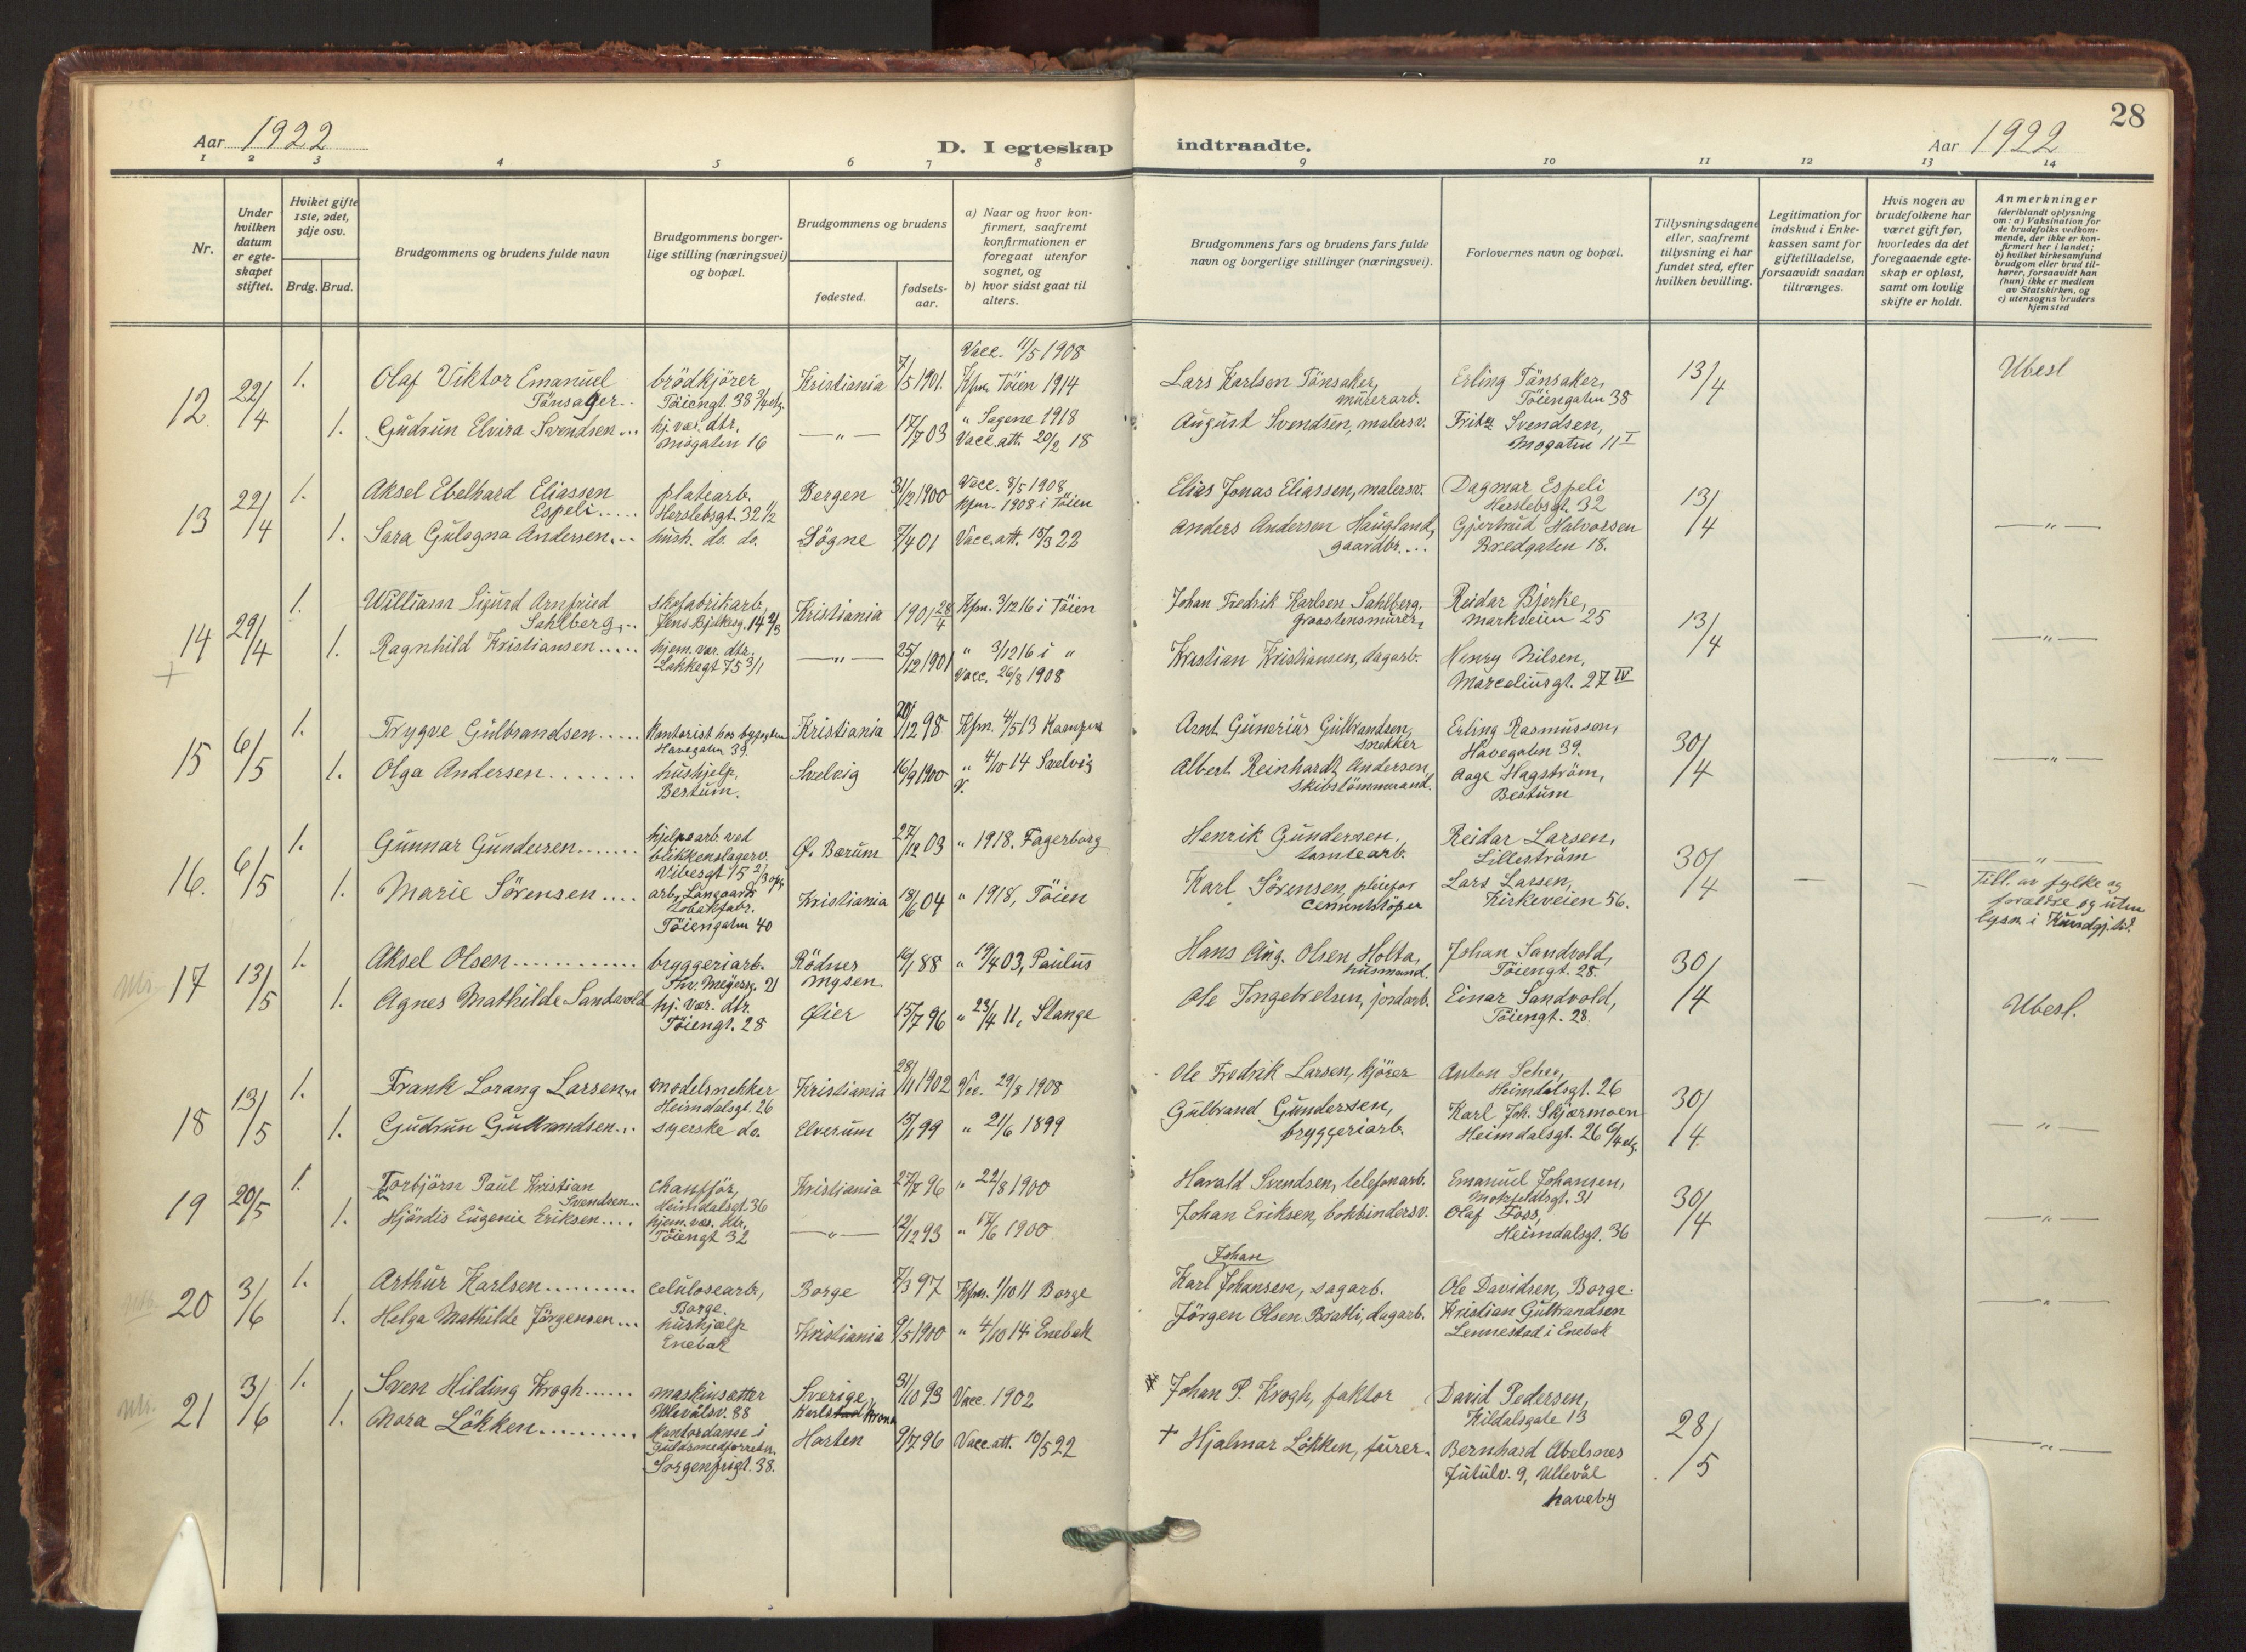 28
Aar 1922
D. I egteskap indtraadte.
Aar 1922
1 2 3 4 5 6 7 8 9 10 11 12 13 14
Nr.
Under hvilken datum er egteskapet stiftet.
Hviket gifte 1ste, 2det, 3dje osv.
Brdg. Brud.
Brudgommens og brudens fulde navn
Brudgommens borgerlige stilling (næringsvei) og bopæl.
Brudgommens og brudens
fødested.
fødselsaar.
a) Naar og hvor konfirmert, saafremt konfirmationen er foregaat utenfor sognet, og
b) hvor sidst gaat til alters.
Brudgommens fars og brudens fars fulde navn og borgerlige stillinger (næringsvei).
Forlovernes navn og bopæl.
Tillysningsdagene eller, saafremt tillysning ei har fundet sted, efter hvilken bevilling.
Legitimation for indskud i Enkekassen samt for giftetilladelse, forsaavidt saadan tiltrænges.
Hvis nogen av brudefolkene har været gift før, hvorledes da det foregaaende egteskap er opløst, samt om lovlig skifte er holdt.
Anmerkninger
(deriblandt oplysning om: a) Vaksination for de brudefolks vedkommende, der ikke er konfirmert her i landet; b) hvilket kirkesamfund brudgom eller brud tilhører, forsaavidt han (hun) ikke er medlem av Statskirken, og c) utensogns bruders hjemsted
12 22/4 1. Olaf Viktor Emanuel Tånsager.. brödkjörer Töiengt. 38 3/4 etg. Kristiania 7/5 1901. Vacc. 11/5 1908 Kfm. Töien 1914
Lars Karlsen Tånsaker, murerarb. Erling Tånsaker, Töiengaten 38 13/4 Ubesl
1. Gudrun Elvira Svendsen... hj. vær. dtr. Mogaten 16 —"— 17/7 03 " Sagene 1918 Vacc. att. 20/2 18
August Svendsen, malersv. Fritz Svendsen, Mogaten 11 I
13 22/4 1. Aksel Ebelhard Eliassen Espeli..... platearb. Herslebsgt. 32 1/2 Bergen 31/12 1900 Vacc. 8/5 1908 Kfm. 1908 i Töien
Elias Jonas Eliassen, malersv. Dagmar Espeli Herslebsgt. 32 13/4 —"—
1. Sara Gulogna Andersen... hush. do. do. Sögne 7/4 01 Vacc. att. 15/3 22
Anders Andersen Haugland, gaardbr.... Gjertrud Halvorsen Bredgaten 18.
14 + 29/4 1. William Sigurd Arnfried Sahlberg... skofabrikarb. Jens Bjelkesg. 14 2/3 Kristiania 1901 28/4 Kfm. 3/12 16 i Töien
Johan Fredrik Karlsen Sahlberg, graastensmurer, Reidar Bjerke, Markveien 25 13/4 —"—
1. Ragnhild Kristiansen..... hjem. vær. dtr. Lakkegt 75 3/1 —"— 25/12 1901 " 3/12 16 i " Vacc. 26/8 1908
Kristian Kristiansen, dagarb. Henry Nilsen, Marceliusgt. 27 IV
15 6/5 1. Trygve Gulbrandsen..... Kontorist hos byfogden Havegaten 39. Kristiania 20/12 98 Kfm. 4/5 13 Kampen
Arnt Gunerius Gulbrandsen, snekker Erling Rasmussen, Havegaten 39. 30/4 —"—
1. Olga Andersen....... hushjelp, Bestum. Svelvig 16/9 1900 " 4/10 14 Svelvig v.
Albert Reinhardt Andersen, skibstömmermand. Aage Hagström, Bestum
16. 6/5 1. Gunnar Gundersen....... hjelpearb. ved blikkenslagerv. Vibesgt 15 2/3 opg Ø. Bærum 27/12 03 " 1918. Fagerborg
Henrik Gundersen, tomtearb. Reidar Larsen, Lilleström 30/4 — — —"—
1. Marie Sörensen.... arb. Langaards Tobakfabr. Töiengaten 40 Kristiania 18/6 04 " 1918, Töien
Karl Sörensen, pleiefar cementstöper Lars Larsen, Kirkeveien 56. Till. av fylke og forældre og uten lysn. i
17 13/5 1. Aksel Olsen............ bryggeriarb. Thv. Meyersg. 21 Rödnes Mysen 16/1 88 " 19/4 03, Paulus
Hans Aug. Olsen Holta, husmand. Johan Sandvold, Töiengt. 28. 30/4 Ubesl.
1. Agnes Mathilde Sandvold hj. vær. dtr. Töiengt. 28 Øier 15/7 96 " 23/4 11, Stange
Ole Ingebretsen, jordarb. Einar Sandvold, Töiengt. 28.
18 13/5 1. Frank Lorang Larsen... modelsnekker Heimdalsgt. 26 Kristiania 28/11 1902 Vcc. 29/8 1908
Ole Fredrik Larsen, kjörer Anton Schee, Heimdalsgt. 26 30/4 —"—
1. Gudrun Gulbrandsen... syerske do. Elverum 15/1 99 " 21/6 1899
Gulbrand Gundersen, bryggeriarb. Karl Joh. Skjærmoen Heimdalsgt. 26 6/4 etg.
19 20/5 1. Torbjörn Paul Kristian Svendsen.. chauffför, Heimdalsgt 36 Kristiania 27/7 96 " 22/8 1900
Harald Svendsen, telefonarb. Emanuel Johansen, Motzfeldtsgt. 31 30/4 —"—
1. Hjördis Eugenie Eriksen.... hjem. vær. dtr. Töiengt 32 —"— 12/12 93 " 17/6 1900
Johan Eriksen, bokbindersv. Olaf Foss, Heimdalsgt. 36
20 3/6 1. Arthur Karlsen......... celulosearb, Borge. Borge 7/3 97 Kfm. 1/10 11 Borge
Johan
Karl Johansen, sagarb. Ole Davidsen, Borge. —"—
1. Helga Mathilde Jörgensen... hushjælp Enebak Kristiania 9/5 1900 " 4/10 14 Enebak
Jörgen Olsen Bratli, dagarb. Kristian Gulbrandsen Lennestad i Enebak
21 3/6 1. Sven Hilding Krogh...... maskinsætter Ullevålsv. 88 Sverige, Karlstad krona 31/10 93 Vacc. 1902
Johan P. Krogh, faktor David Pedersen, Kildalsgate 13 28/5 —"—
1. Nora Lökken......... kontordame i Guldsmedforretn. Sorgenfrigt. 38. Horten 9/7 96 Vacc. att. 10/5 22
+ Hjalmar Lökken, furer. Bernhard Abelsnes Jutulv. 9, Ullevål haveby